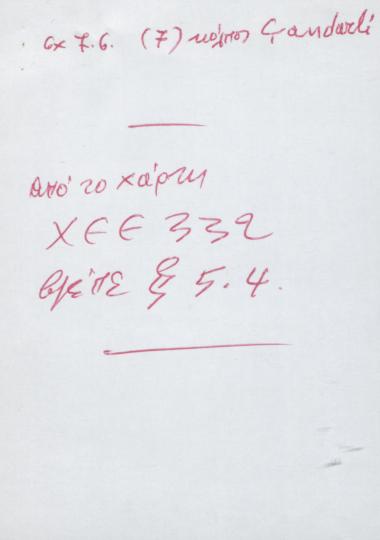 σχ 7.6. (7) κόλπος Çandarli
από το χάρτη
ΧΕΕ 332
βλέπε § 5.4.